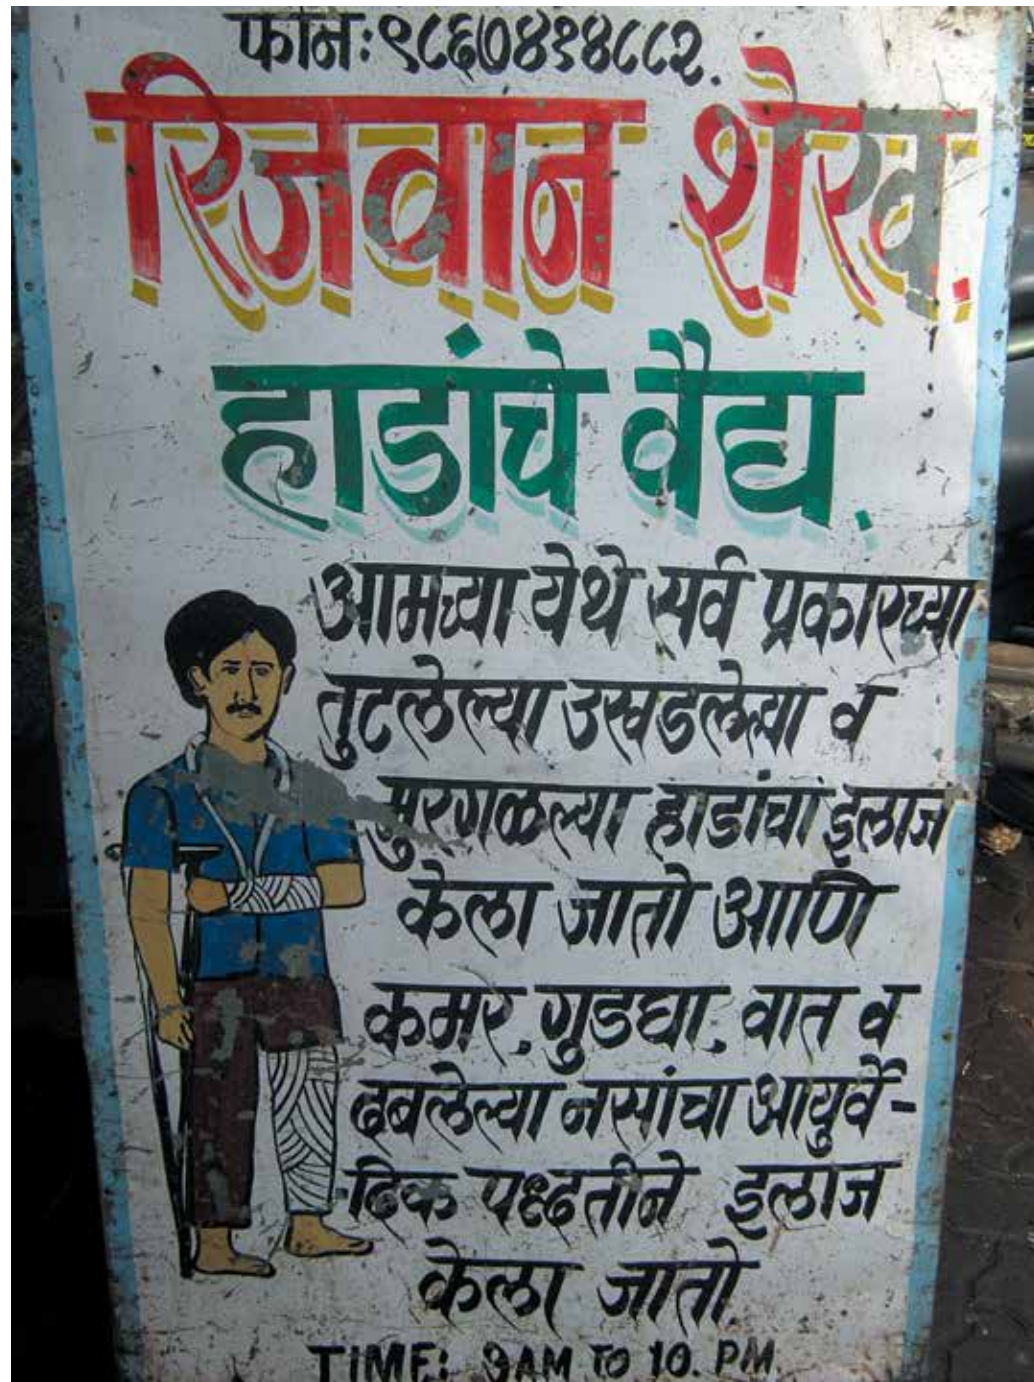 फोन: ९८६७४१४८८२.
रिजवान शेख.
हाडांचे वैद्य.
आमच्या येथे सर्व प्रकारच्या
तुटलेल्या उखडलेल्या व
मुरगळल्या हाडांचा इलाज
केला जातो आणि
कमर, गुडघा, वात व
दबलेल्या नसांचा आयुर्वे-
-दिक पध्दतीने इलाज
केला जातो.
TIME: 9AM TO 10. PM.